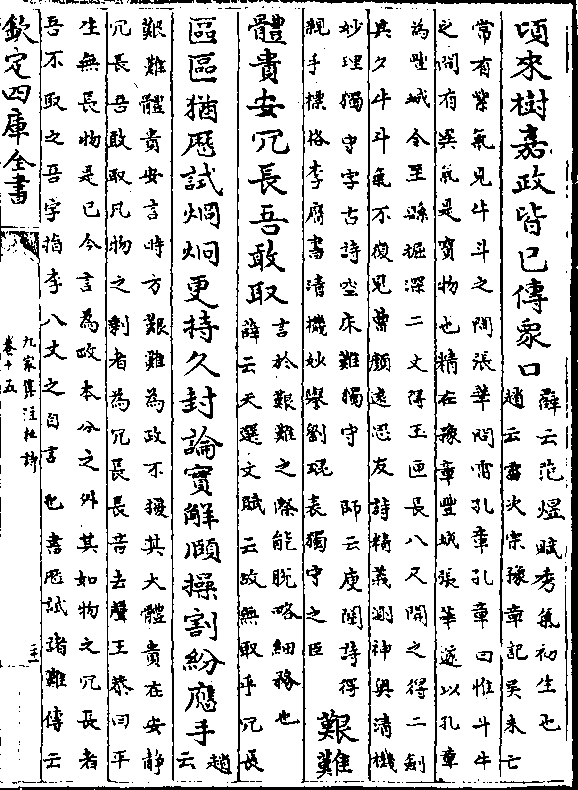 頃來樹嘉政皆已傳衆口
薛云范煜賦秀氣初生也
趙云雷次宗豫章記吳未亡
常有紫氣見牛斗之間張華問雷孔章孔章曰惟斗牛
之間有異氣是寶物也精在豫章豐城張華遂以孔章
為豐城令至縣掘深二丈得玉匣長八尺開之得二劍
其夕牛斗氣不復見曹顔遠思友詩精義測神奥清機
妙理獨守字古詩空床難獨守 師云庾闡詩得
親手標格李膺書清機妙舉劉琨表獨守之臣
艱難
體貴安冗長吾敢取
言於艱難之際能脫略細務也
薛云天選文賦云故無取乎冗長
區區猶歷試炯炯更持久封論實解頤操割紛應手
趙云
艱難體貴安言時方艱難為政不擾其大體貴在安靜
冗長吾敢取凡物之剩者為冗長長音去聲王恭曰平
生無長物是已今言為政本分之外其如物之冗長者
吾不取之吾字指李八丈之自言也書歷試諸難傳云
欽定四庫全書
九家集注杜詩
卷十五